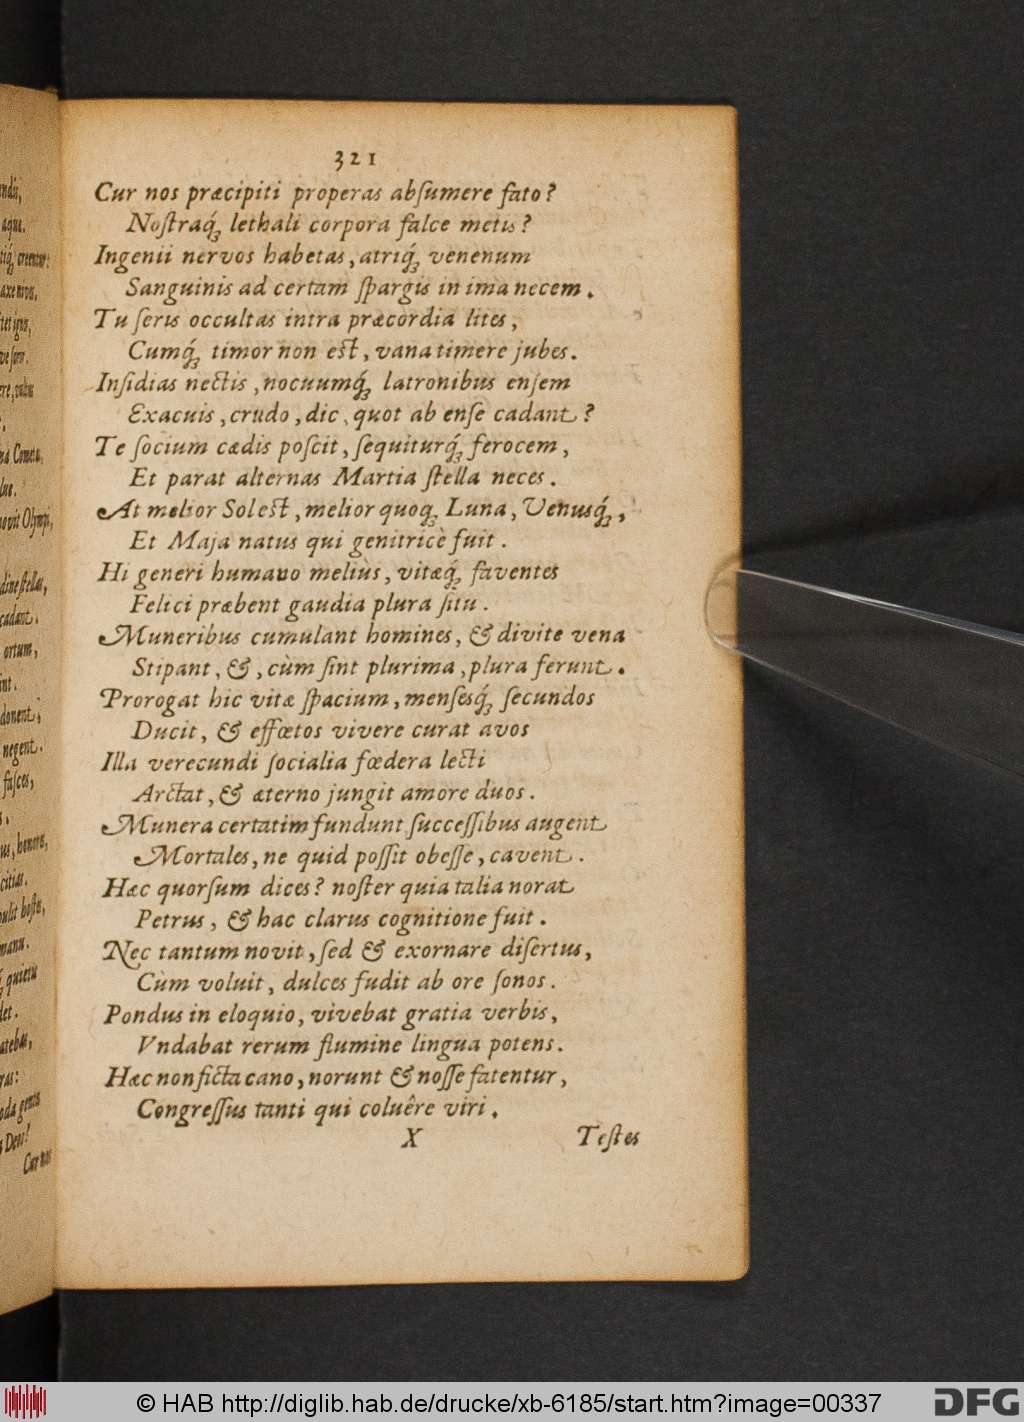 321
Cur nos præcipiti properas abſumere fato?
Noſtraq́ꝫ lethali corpora falce metis?
Ingenii nervos habetas, atriq́ꝫ venenum
Sanguinis ad certam ſpargis in ima necem.
Tu ſeris occultas intra præcordia lites,
Cumq́ꝫ timor non eſt, vana timere jubes.
Inſidias nectis, nocuumq́ꝫ latronibus enſem
Exacuis, crudo, dic, quot ab enſe cadant?
Te ſocium cædis poſcit, ſequiturq́ꝫ ferocem,
Et parat alternas Martia ſtella neces.
At melior Sol eſt, melior quoqꝫ Luna, Venusq́ꝫ,
Et Maja natus qui genitricè fuit.
Hi generi humano meliùs, vitæq́ꝫ faventes
Felici præbent gaudia plura ſitu.
Muneribus cumulant homines, & divite vena
Stipant, &, cùm ſint plurima, plura ferunt.
Prorogat hic vitæ ſpacium, menſesq́ꝫ ſecundos
Ducit, & effœtos vivere curat avos
Illa verecundi ſocialia fœdera lecti
Arctat, & æterno jungit amore duos.
Munera certatim fundunt ſucceſſibus augent
Mortales, ne quid poſſit obeſſe, cavent.
Hæc quorſum dices? noſter quia talia norat
Petrus, & hac clarus cognitione fuit.
Nec tantum novit, ſed & exornare diſertus,
Cùm voluit, dulces fudit ab ore ſonos.
Pondus in eloquio, vivebat gratia verbis,
Vndabat rerum flumine lingua potens.
Hæc non ficta cano, norunt & noſſe fatentur,
Congreſſus tanti qui coluêre viri.
X Teſtes
© HAB http://diglib.hab.de/drucke/xb-6185/start.htm?image=00337
DFG